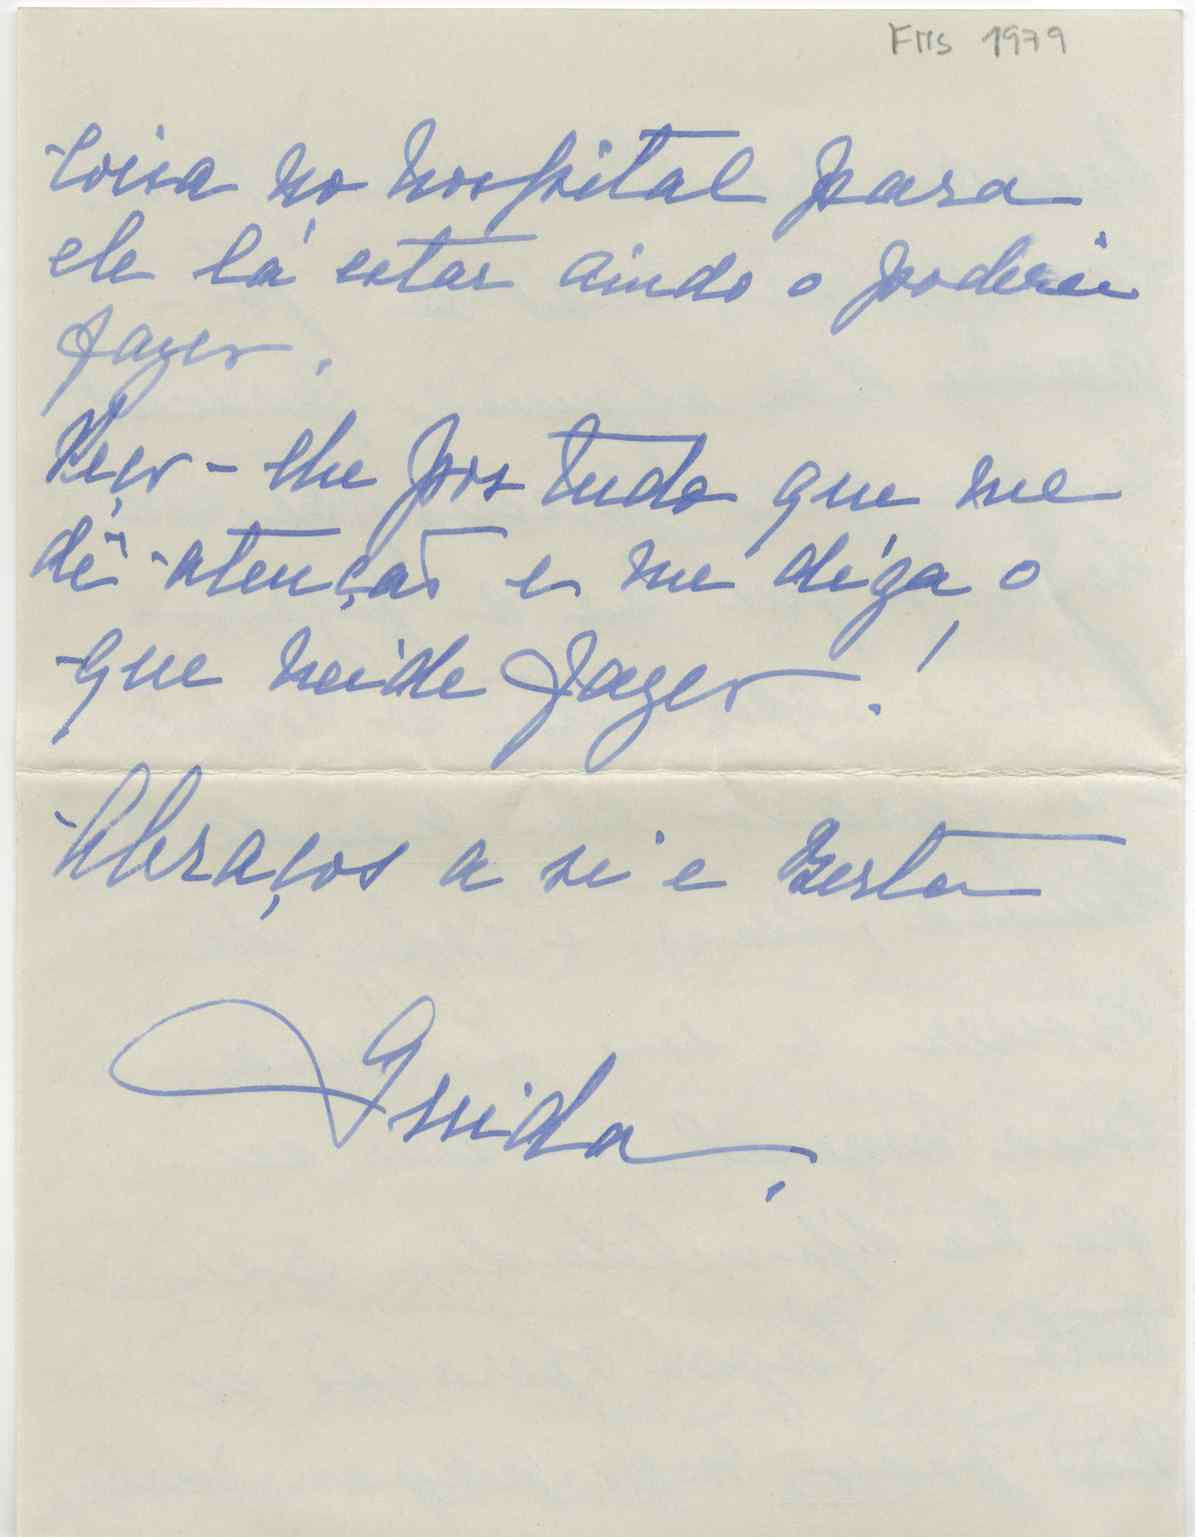 FMS 1979
coisa no hospital para
ele lá estar ainda o poderei
fazer.
Peço-lhe por tudo que me
dê atenção e me diga o
que heide fazer!
Abraços a si e Berta
Guida.